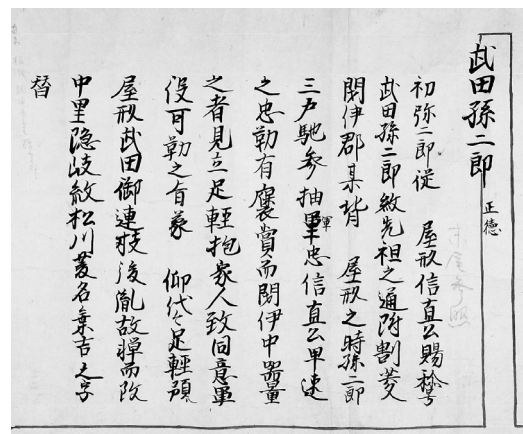 武田孫二郎
正徳
初弥二郎従 屋形信直公賜称号
武田孫二郎紋先祖之通附割菱
閉伊郡某背 屋形之時孫二郎
三戸馳参抽軍忠信直公早速
之忠勤有褒賞而閉伊中器量
之者見立足軽抱家人致同意軍
役可勤之旨蒙 仰代々足軽預
屋形武田御連枝後胤故憚而改
中里隠岐紋松川菱名乗吉之字
督